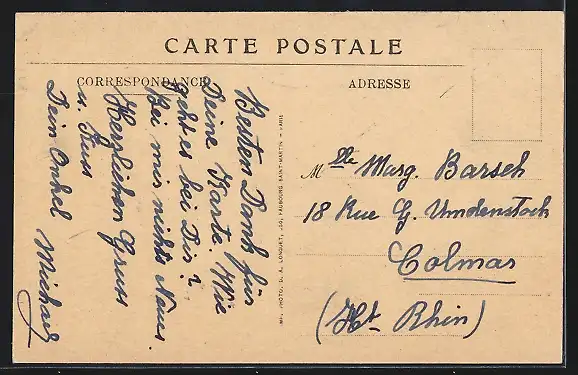 CARTE POSTALE
CORRESPONDANCE
ADRESSE
Besten Dank für
Deine Karte. Wie
geht es bei Dir?
Bei mir nichts Neues.
Herzlichen Gruss
u. Kuss
Dein Onkel Michael
PHOTO. D. A. LONGUET, FAUBOURG SAINT-MARTIN - PARIS
Mlle Marg. Barsch
18 Rue G. Umdenstock
Colmar
(Ht Rhin)